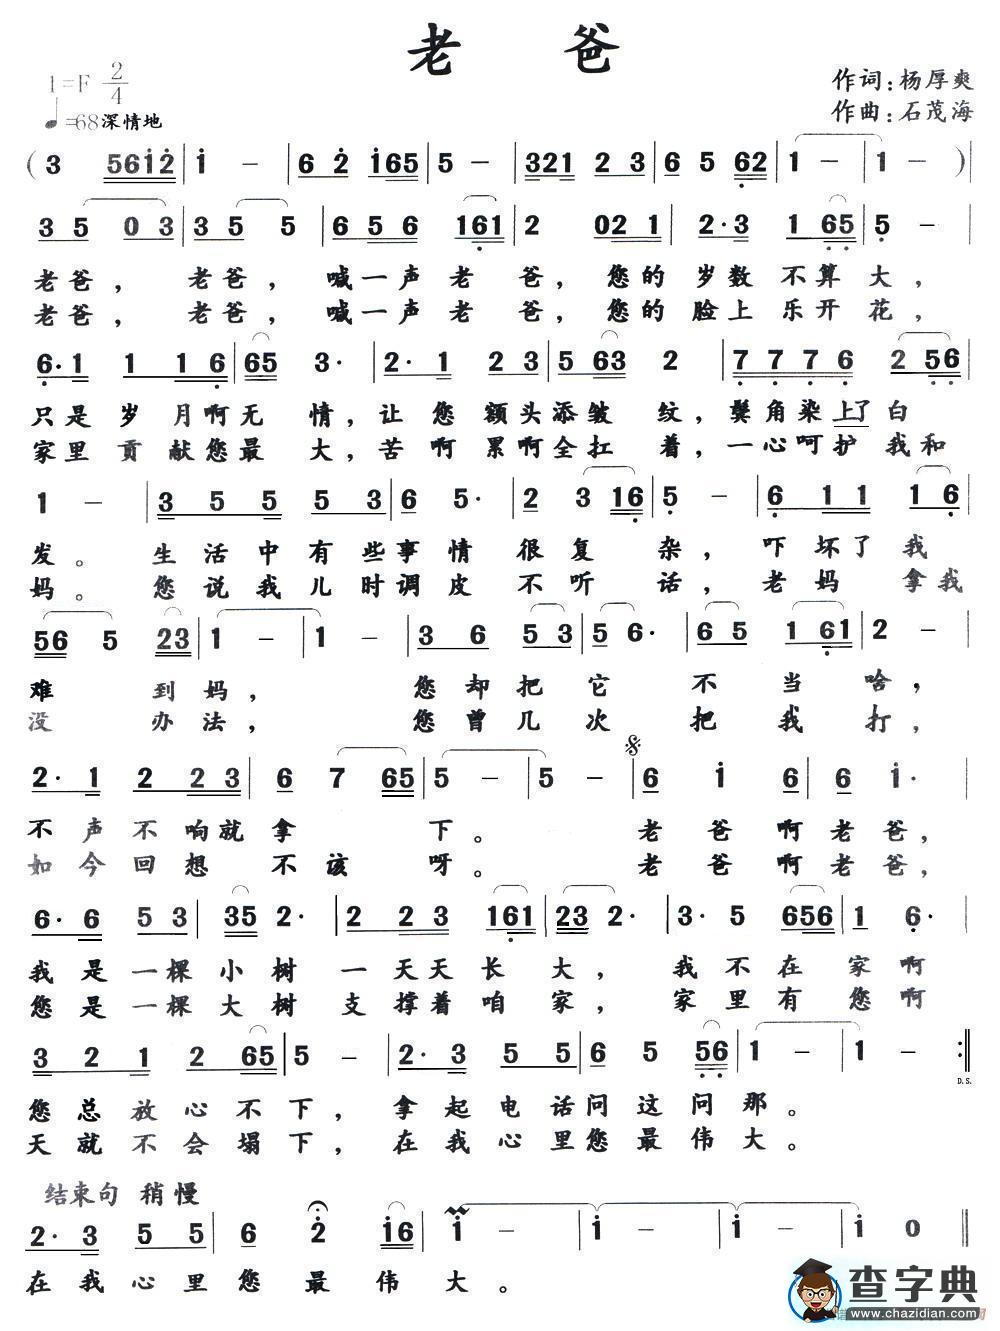 老 爸
1=F 2/4
作词:杨厚爽
♩=68深情地
作曲:石茂海
( 3 5612 | 1 - | 6 2 165 | 5 - | 321 2 3 | 6 5 62 | 1 - | 1 - )|
3 5 0 3 | 3 5 5 | 6 5 6 161 | 2 02 1 | 2·3 1 65 | 5 - |
老爸, 老爸, 喊一声老 爸, 您的 岁数 不算大,
老爸, 老爸, 喊一声老 爸, 您的 脸上 乐开花,
6·1 1 1 6 | 65 3· | 2·1 2 3 | 5 63 2 | 7 7 7 6 2 56 |
只是 岁 月啊无 情, 让 您 额头添皱 纹, 鬓角染上了白
家里 贡 献您最 大, 苦 啊 累啊全扛 着, 一心呵护 我和
1 - | 3 5 5 5 3 | 6 5· | 2 3 16 | 5 - | 6 1 1 1 6 |
发。 生活中有些事情 很复 杂, 吓坏了我
妈。 您说我儿时调皮 不听 话, 老妈 拿我
56 5 23 | 1 - | 1 - | 3 6 5 3 | 5 6· | 6 5 1 61 | 2 - |
难 到妈, 您却把它 不 当 啥,
没 办法, 您曾几次 把 我 打,
2·1 2 2 3 | 6 7 65 | 5 - | 5 - | 6 i 6 | 6 i· |
不声不响就拿 下。 老 爸 啊老爸,
如今回想 不该 呀。 老 爸 啊老爸,
6·6 5 3 | 35 2· | 2 2 3 161 | 23 2· | 3·5 656 | 1 6· |
我是一棵小树 一天天长 大, 我不在家啊
您是一棵大树 支撑着咱 家, 家里有您啊
3 2 1 2 65 | 5 - | 2·3 5 5 | 6 5 56 | 1 - | 1 - :‖
D.S.
您总放心不下, 拿起电话问这问那。
天就不会塌下, 在我心里您最伟大。
结束句 稍慢
2·3 5 5 | 6 2 i6 | i - | i - | i - | i 0 ‖
在我心里您 最 伟 大。
查字典
www.chazidian.com